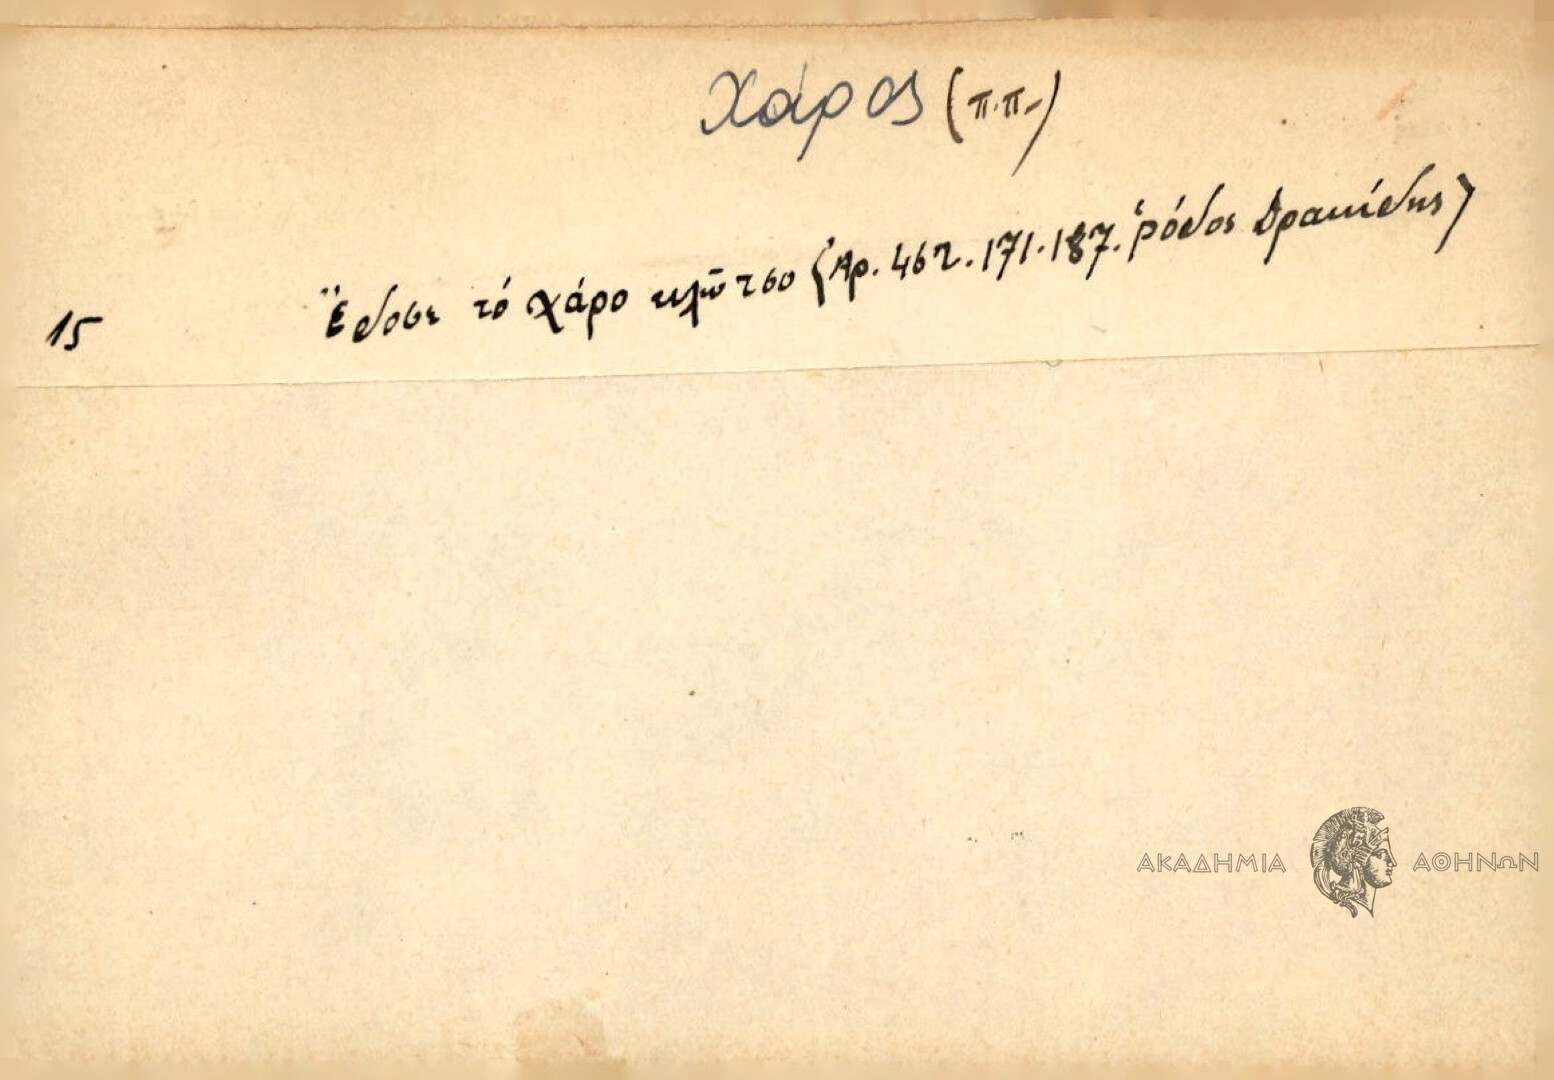 Χάρος (π.π.)
15 Ἔδοσε τό χάρο κλῶτσο (Ἀρ. 462. 171. 187. Ῥόδος Δρακίδης)
ΑΚΑΔΗΜΙΑ ΑΘΗΝΩΝ